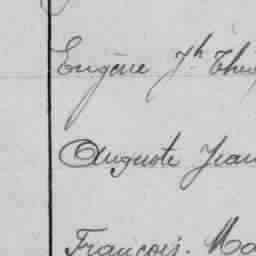 Eugène Jh
Auguste Jean
François. Ma